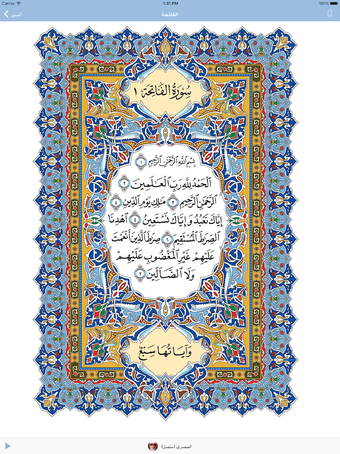 Carrier 1:51 PM 100%
السور الفاتحة
سُورَةُ الْفَاتِحَةِ ١
بِسْمِ اللَّهِ الرَّحْمَٰنِ الرَّحِيمِ ١
الْحَمْدُ لِلَّهِ رَبِّ الْعَٰلَمِينَ ٢
الرَّحْمَٰنِ الرَّحِيمِ ٣ مَٰلِكِ يَوْمِ الدِّينِ ٤
إِيَّاكَ نَعْبُدُ وَإِيَّاكَ نَسْتَعِينُ ٥ اهْدِنَا
الصِّرَٰطَ الْمُسْتَقِيمَ ٦ صِرَٰطَ الَّذِينَ أَنْعَمْتَ
عَلَيْهِمْ غَيْرِ الْمَغْضُوبِ عَلَيْهِمْ
وَلَا الضَّالِّينَ ٧
وَآيَاتُهَا سَبْعٌ